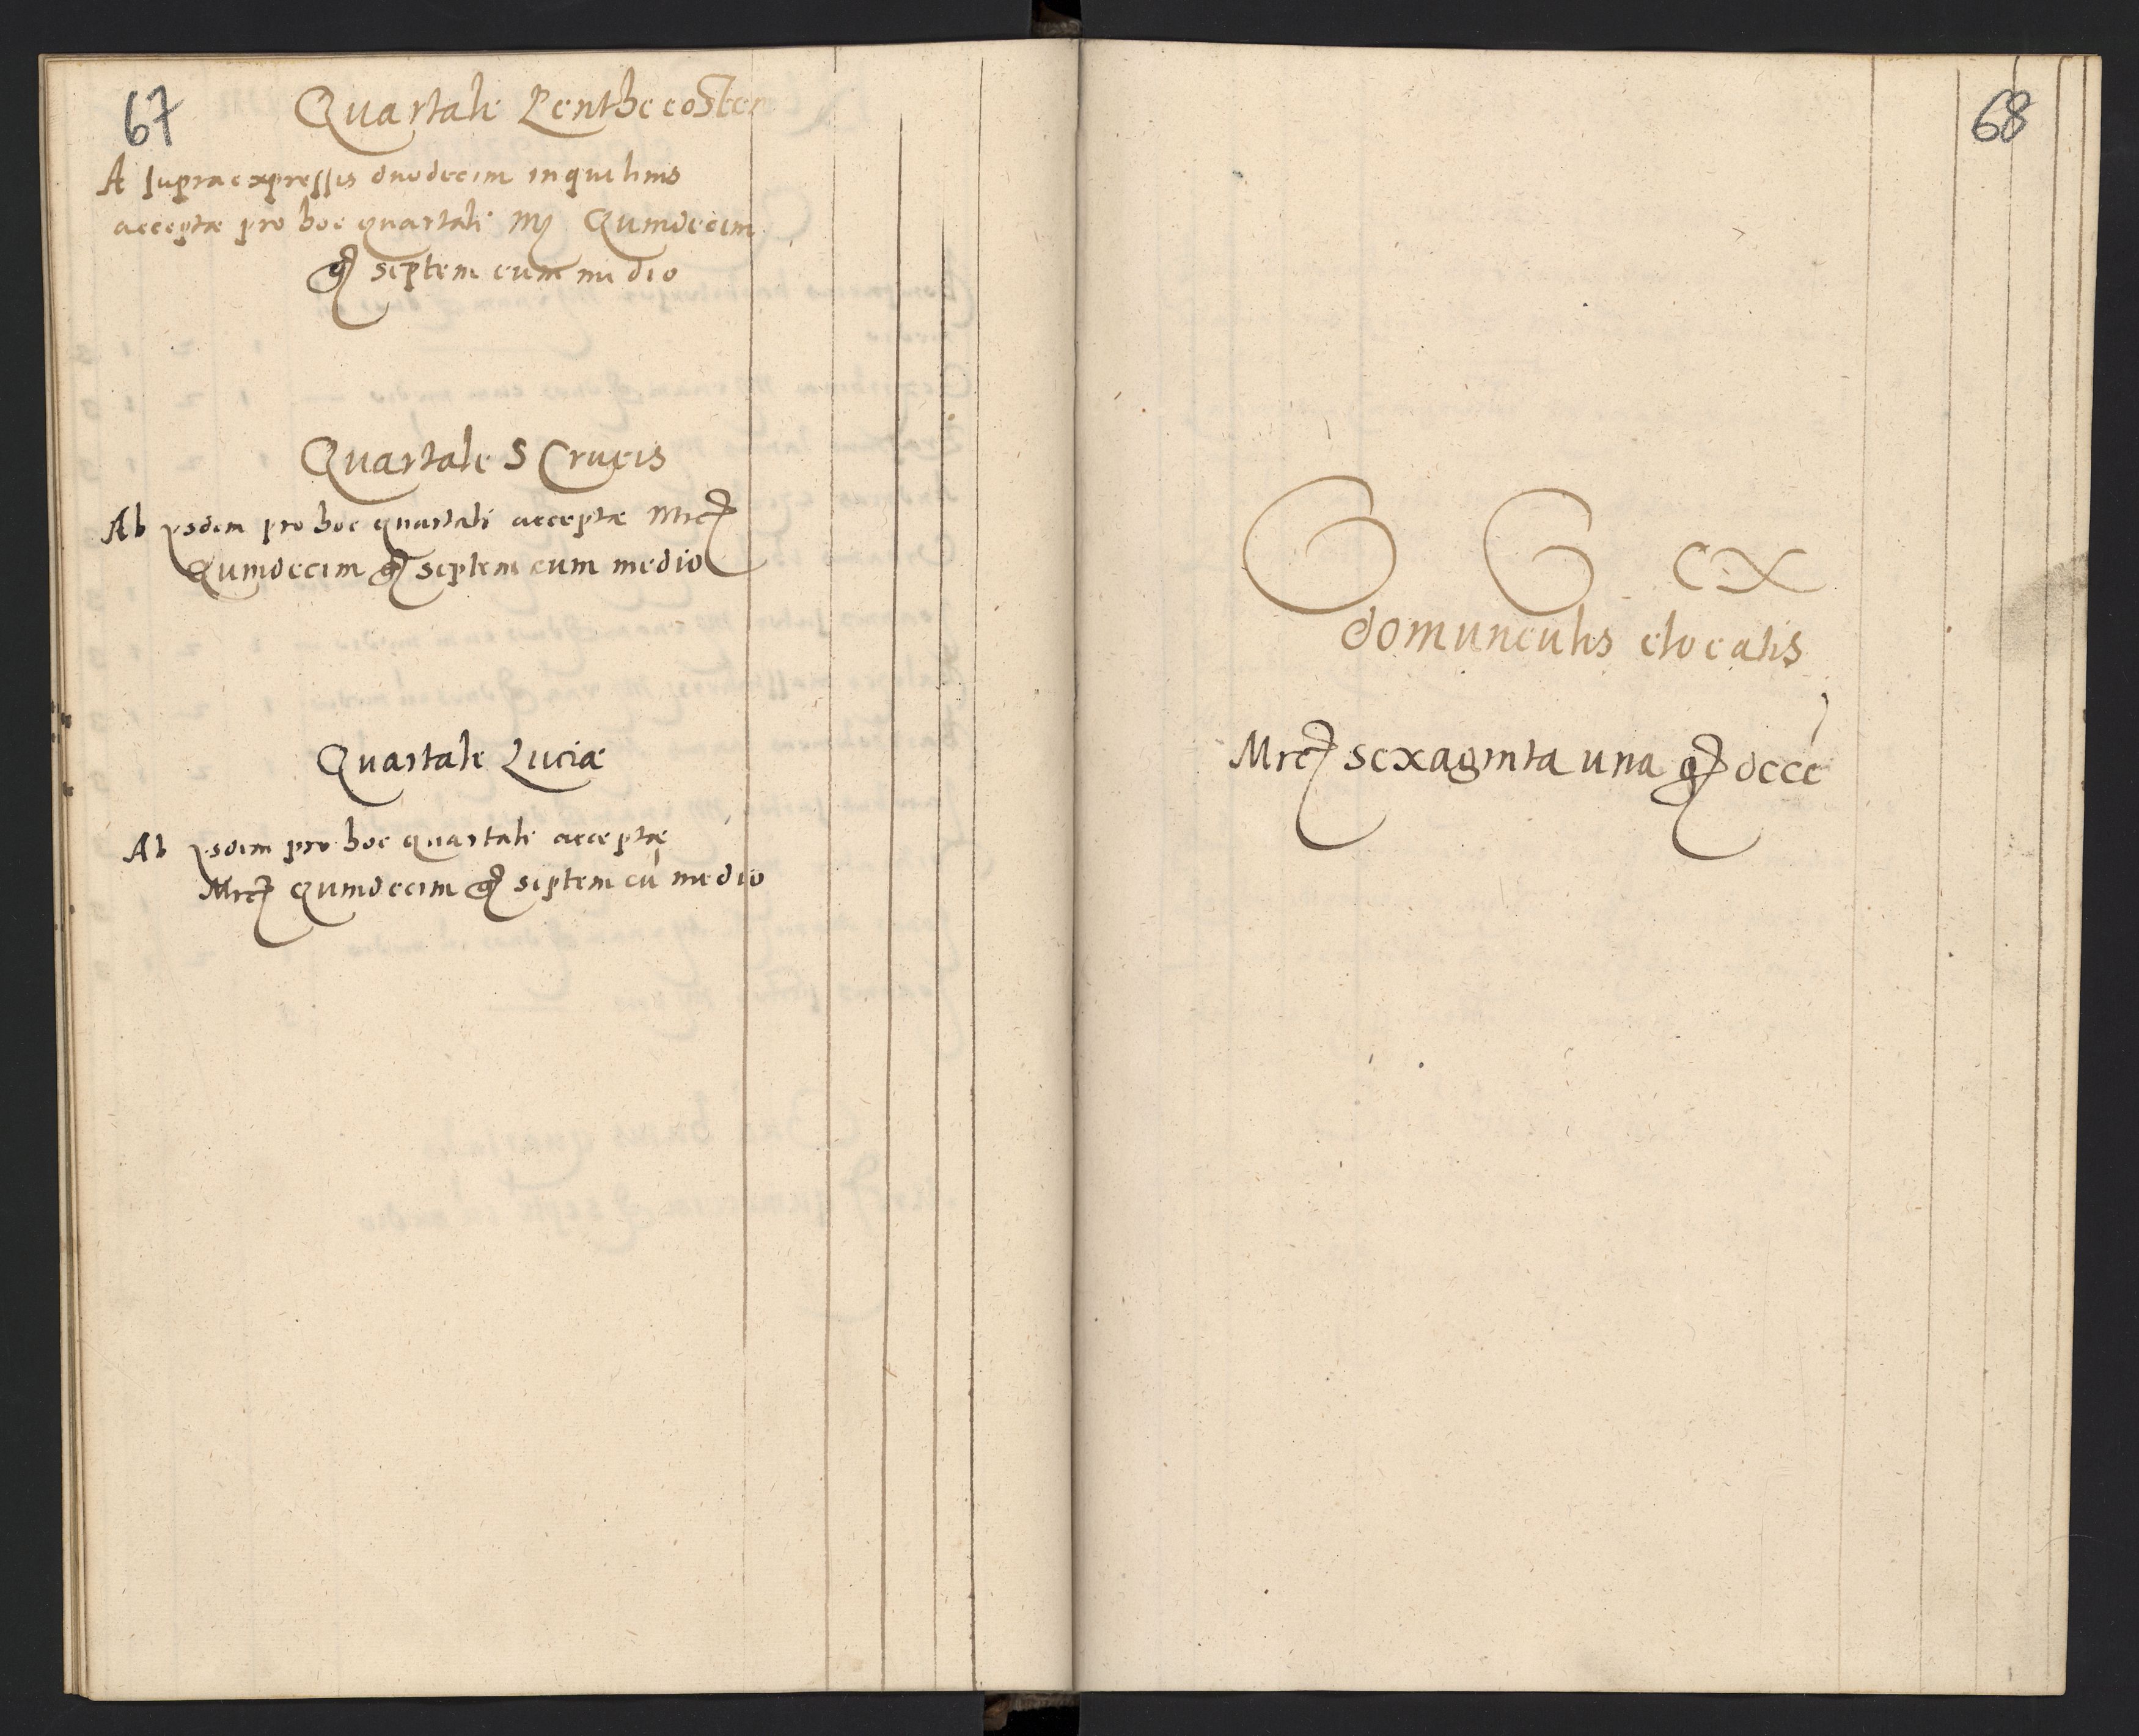 67
Quartale Penthecosten
A supraexpressis duodecim inquilinis
acceptæ pro hoc quartali Mr Quindecim
gr septem cum medio
Quartale S Crucis
Ab ysdem pro hoc quartali acceptæ Mrc
Quindecim gr septem cum medio
Quartale Luciæ
Ab ysdem pro hoc quartali acceptæ
Mrc quindecim gr septem cu medio
68
G G ex
domunculis elocatis
Mrc sexaginta una gr decē